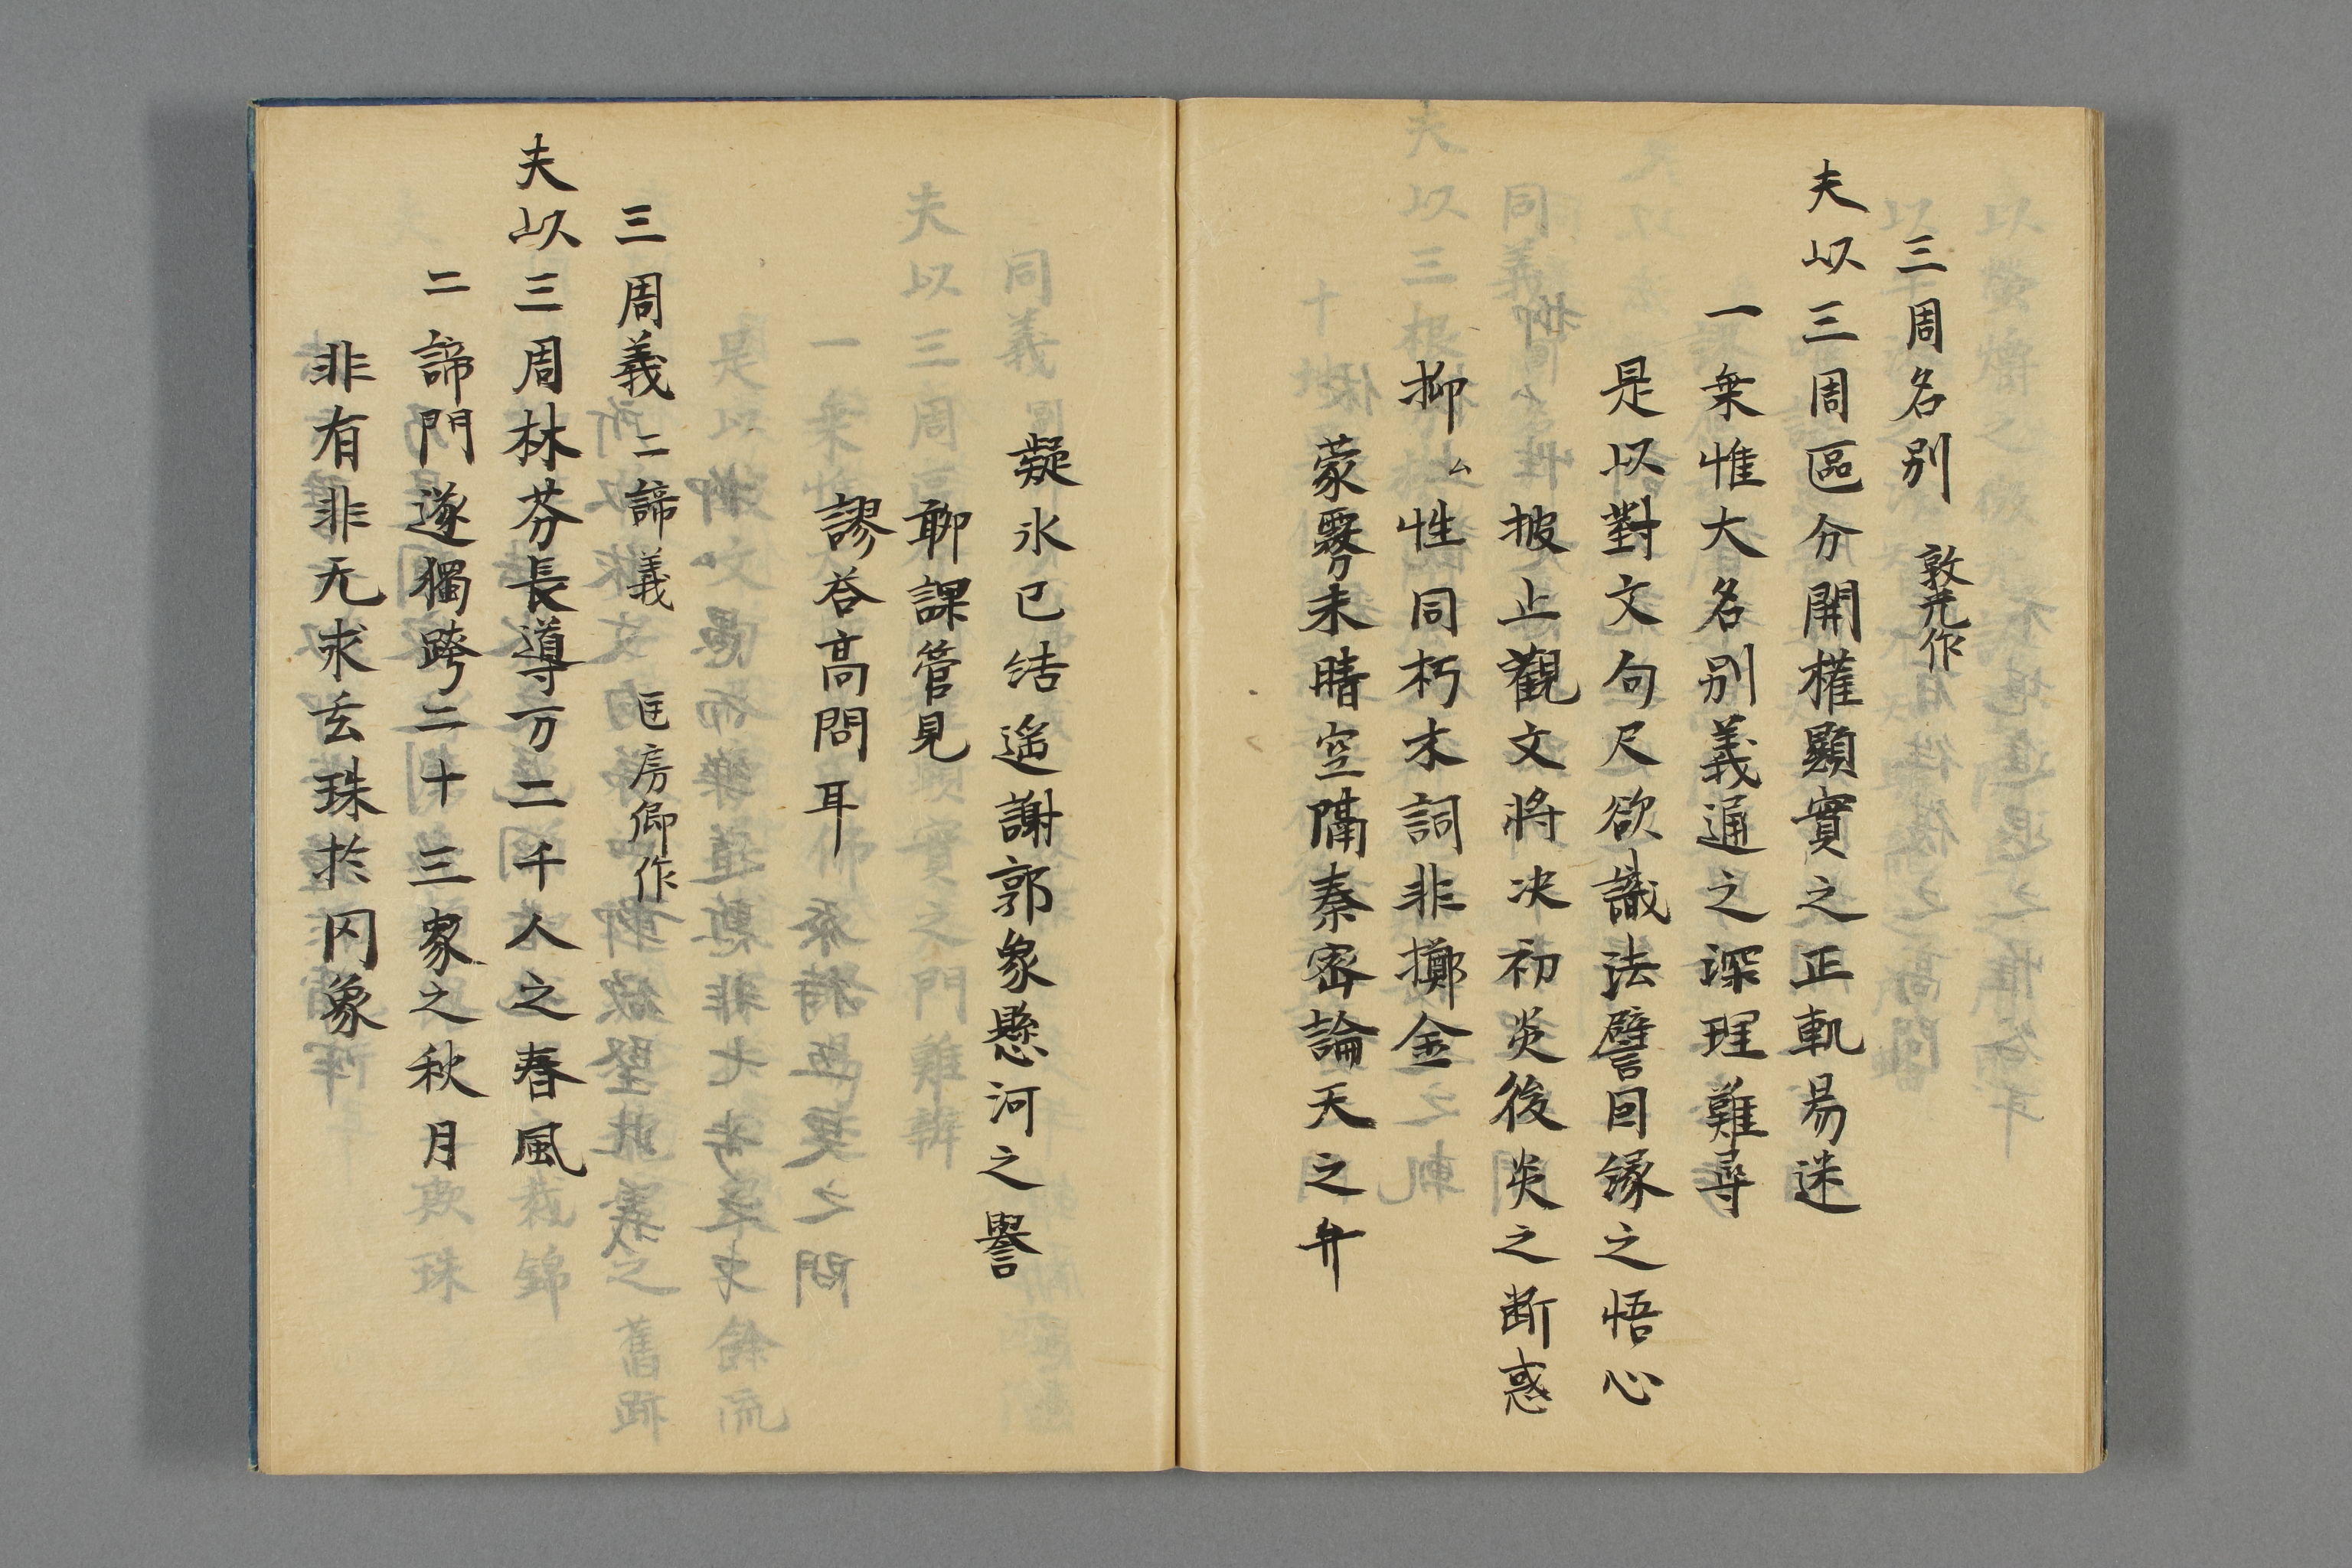 三周名別　敦光作
夫以三周區分開權顯實之正軌易迷
一乗惟大名別義通之深理難尋
是以對文句尺欲識法譬因縁之悟心
披止觀文將决初炎後炎之断惑
抑ム性同朽木詞非擲金
蒙霧未晴空隔秦密論天之弁
凝氷已结遥謝郭象懸河之譽
聊課管見
謬荅高問耳
三周義　二諦義　匡房卿作
夫以三周林芬長導万二千人之春風
二諦門邃獨跨二十三家之秋月
非有非无求玄珠於罔象